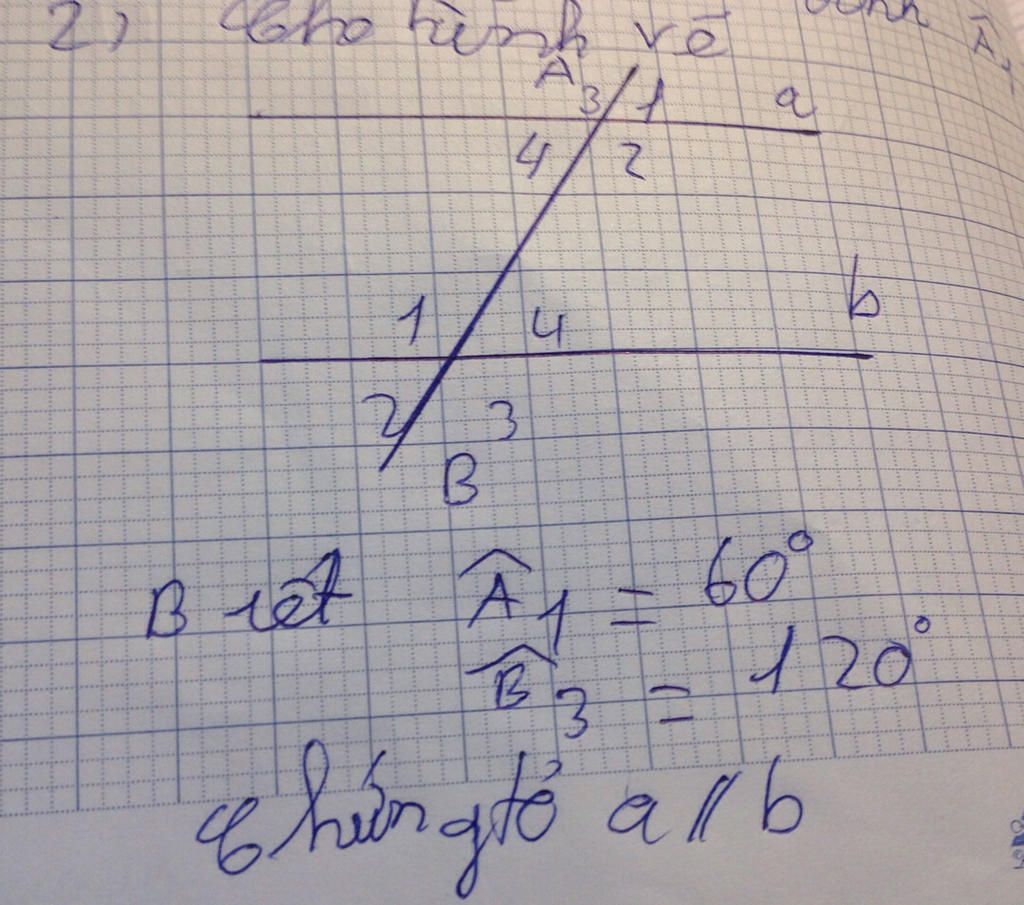 2) Cho hình vẽ
A 3 1 a
4 2
1 4 b
2 3
B
Biết Â1 = 60°
B̂3 = 120°
Chứng tỏ a // b